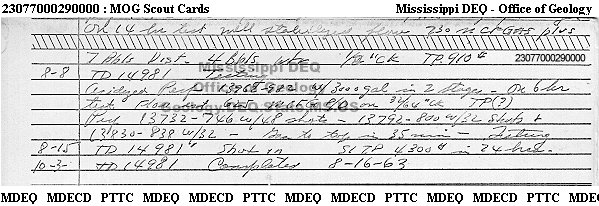 23077000290000 : MOG Scout Cards Mississippi DEQ - Office of Geology
On 14 hr test well stabilized flow 730 MCF Gas plus
7 Bbls Dist. 4 Bbls wtr "CK TP 910# 23077000290000
Mississippi DEQ
8-8 TD 14981 Testing
Office of Geology
Acidized Perfs 13968-982 w/3000 gal in 2 stages - On 6 hr
test flowed gas on "CK TP(?)
Perf 13732-746 w/48 shots - 13792-800 w/32 shots &
13830-838 w/32 - Gas to top in 35 min - Testing
8-15 TD 14981' Shut in SITP 4300# in 24 hrs.
10-3- TD 14981 Completed 8-16-63
MDEQ MDECD PTTC MDEQ MDECD PTTC MDEQ MDECD PTTC MDEQ MDECD PTTC